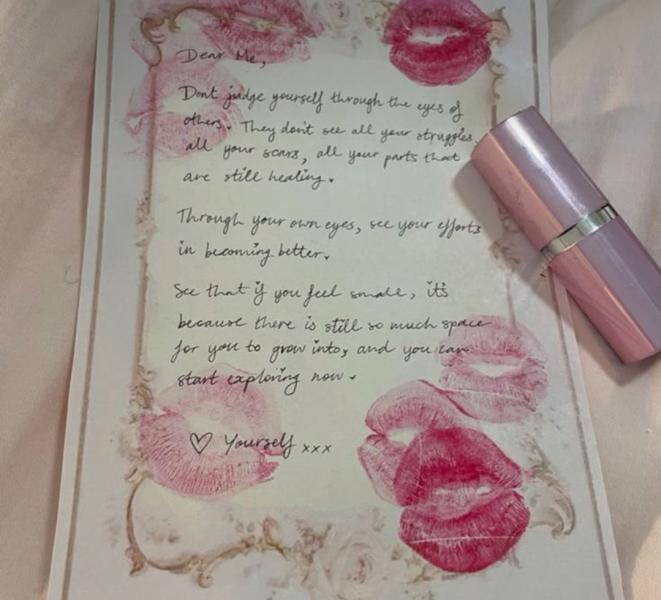 Dear Me,
Don't judge yourself through the eyes of
others. They don't see all your struggles,
all your scars, all your parts that
are still healing.
Through your own eyes, see your efforts
in becoming better.
See that if you feel small, it's
because there is still so much space
for you to grow into, and you can
start exploring now.
♡ Yourself xxx